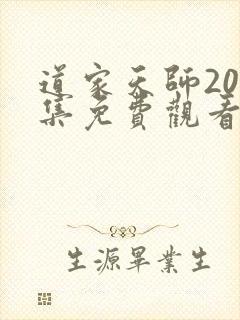 道家天師20
集免費觀看
生源畢業生